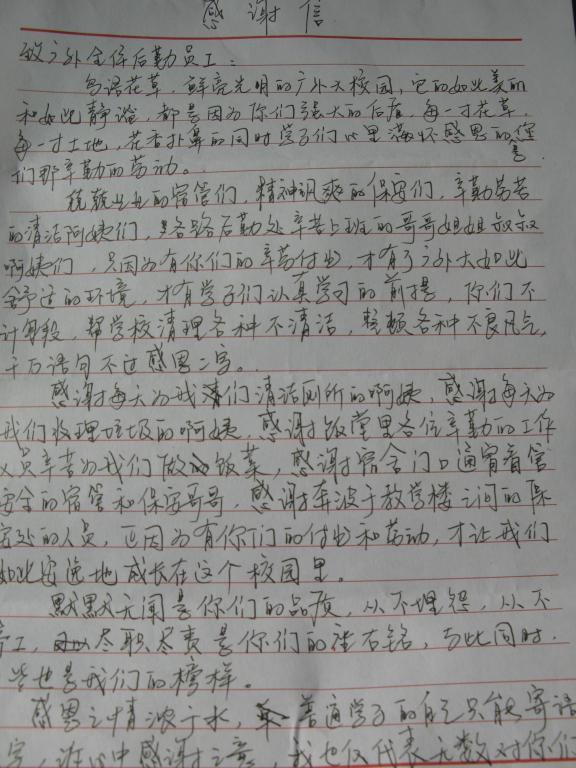 感谢信
致广外全体后勤员工：
鸟语花草，鲜亮光明的广外大校园，它的如此美丽
和如此静谧，都是因为你们强大的后盾，每一寸花草，
每一寸土地，花香扑鼻的同时学子们心里满怀感恩的是
们那辛勤的劳动。
兢兢业业的宿管们，精神飒爽的保安们，辛勤劳苦
的清洁阿姨们，各路后勤处辛苦上班的哥哥姐姐叔叔
啊姨们，只因为有你们的辛劳付出，才有了广外大如此
舒适的环境，才有学子们认真学习的前提，你们不
计身段，帮学校清理各种不清洁，整顿各种不良风气，
千万语句不过感恩二字。
感谢每天为我们清洁厕所的啊姨，感谢每天为
我们收理垃圾的啊姨，感谢饭堂里各位辛勤的工作
人员辛苦为我们做的饭菜，感谢宿舍门口通宵看管
安全的宿管和保安哥哥，感谢奔波于教学楼之间的保
安处的人员，正因为有你们的付出和劳动，才让我们
如此安逸地成长在这个校园里。
默默无闻是你们的品质，从不埋怨，从不
工，尽职尽责是你们的座右铭，与此同时，
些也是我们的榜样。
感恩之情浓于水，普通学子的自己只能寄语
字，在心中感谢之意，我也仅代表无数对你们